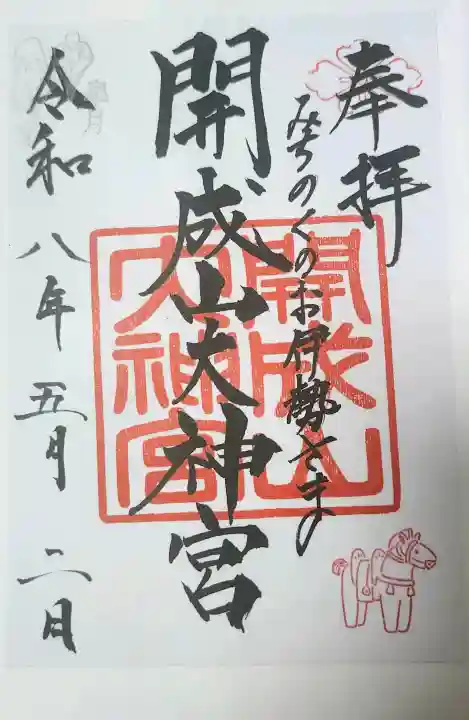 奉拝
みちのくのお伊勢さま
開成山大神宮
開成山大神宮
令和八年五月二日